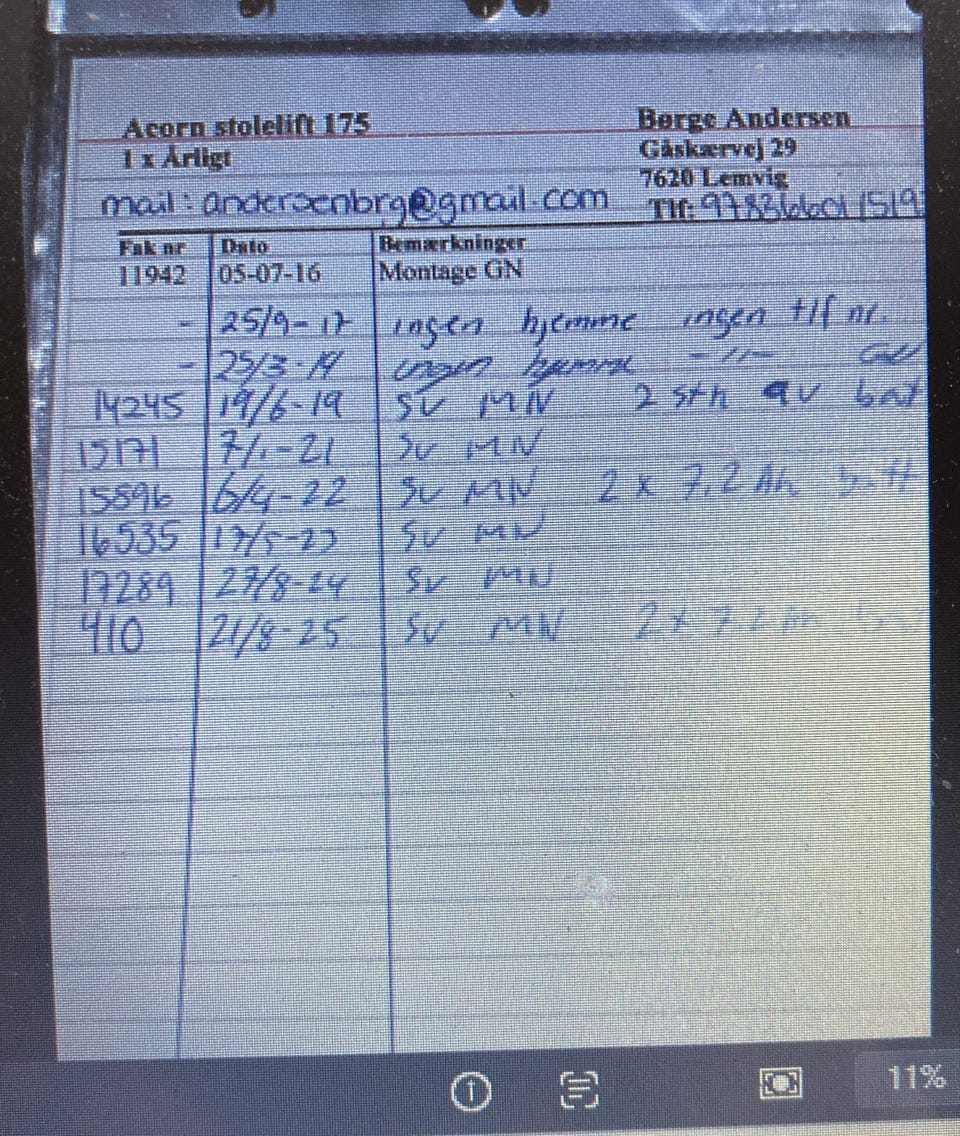 Acorn stolelift 175
1 x Årligt
Børge Andersen
Gåskærvej 29
7620 Lemvig
mail: andersenbrg@gmail.com
Tlf:
Fak nr Dato Bemærkninger
11942 05-07-16 Montage GN
- 25/9-17 ingen hjemme ingen tlf nr.
- 25/3-19 ingen hjemme -"-
14245 19/6-19 SV MN 2 stk av bat
15171 7/1-21 SV MN
15896 6/4-22 SV MN 2 x 7,2 Ah batt
16535 17/5-23 SV MN
17289 27/8-24 SV MN
410 21/8-25 SV MN 2 x 7,2 Ah
11%